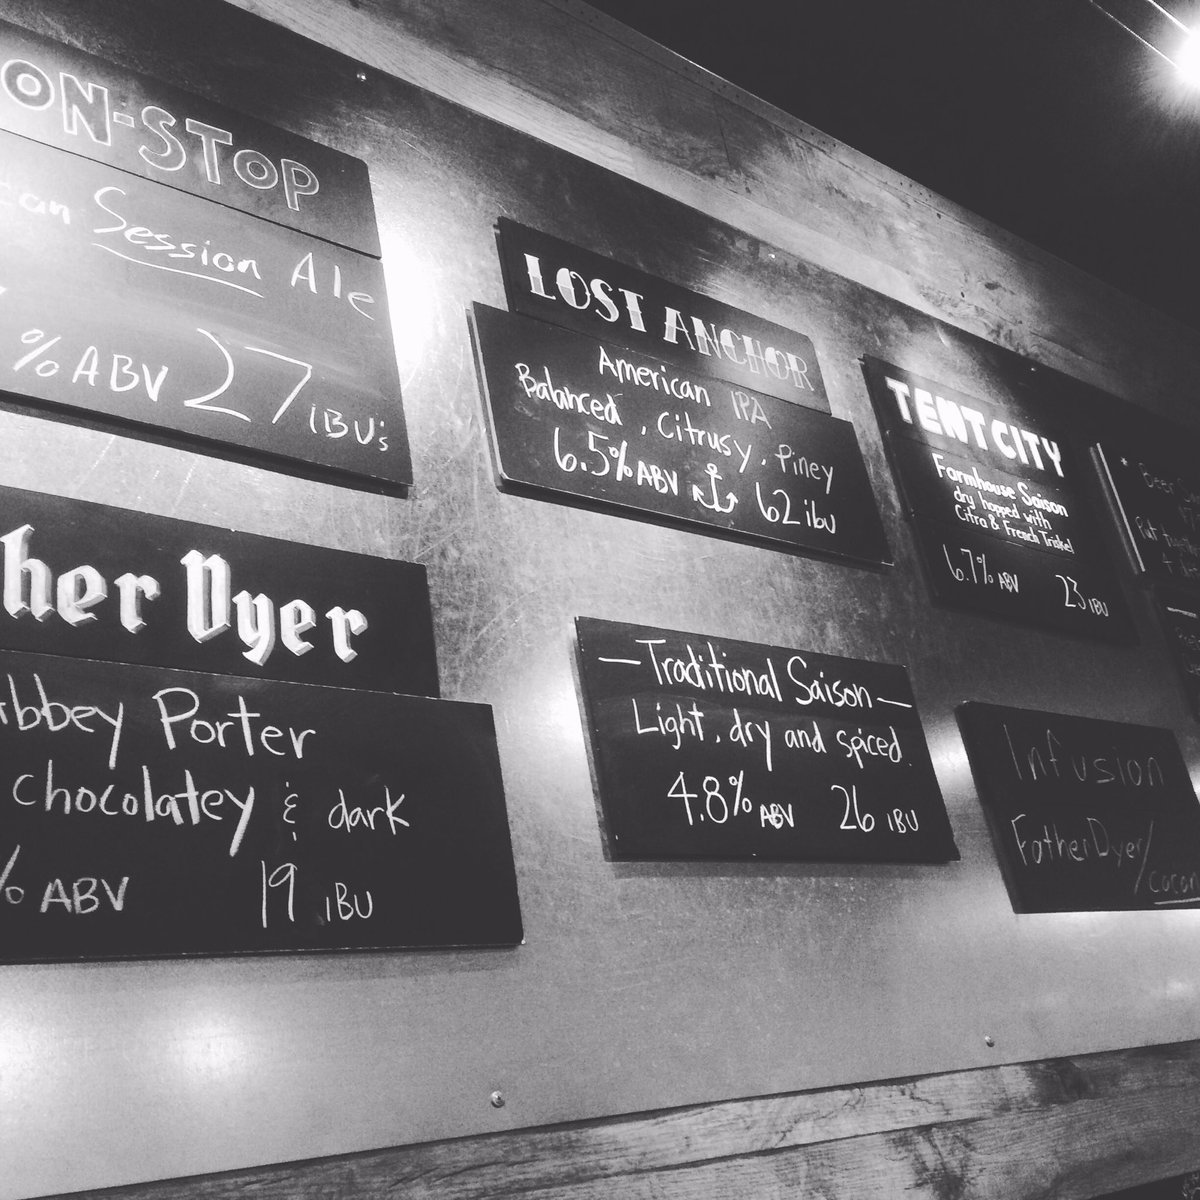 ON-STOP
can Session Ale
% ABV 27 IBU's
LOST ANCHOR
American IPA
Balanced, Citrusy, Piney
6.5% ABV 62 ibu
TENT CITY
Farmhouse Saison
dry hopped with
Citra & French Triskel
6.7% ABV 23 IBU
Beer
her Dyer
Abbey Porter
chocolatey & dark
% ABV 19 IBU
—Traditional Saison—
Light, dry and spiced.
4.8% ABV 26 IBU
Infusion
Father Dyer/
cocon